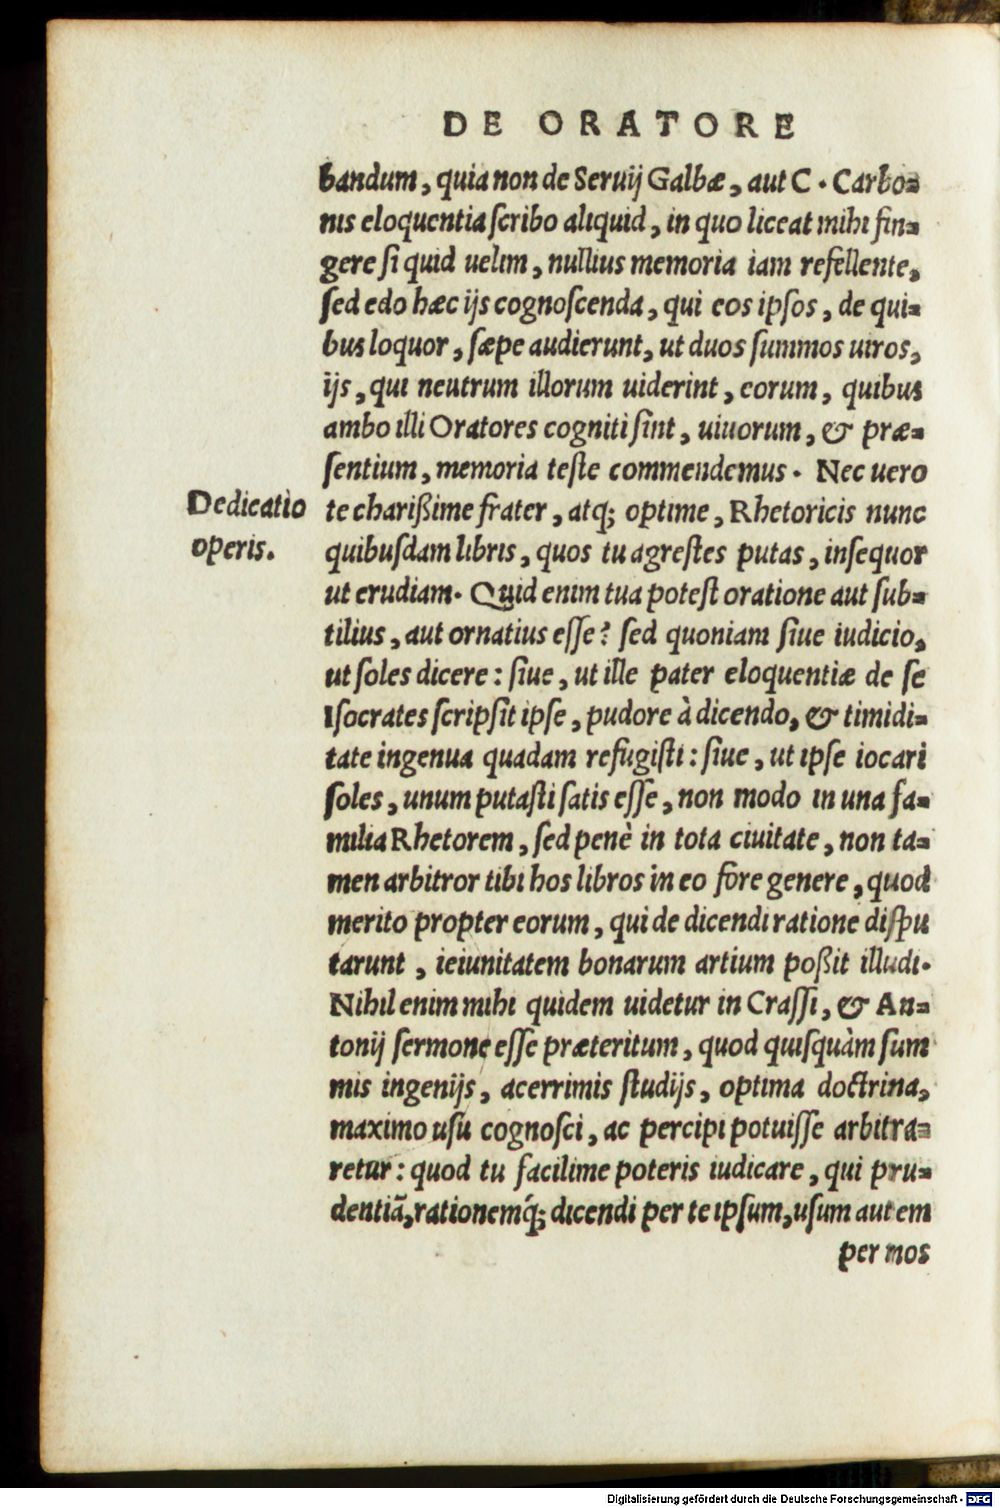 DE ORATORE
bandum, quia non de Seruij Galbæ, aut C. Carbo=
nis eloquentia scribo aliquid, in quo liceat mihi fin=
gere si quid uelim, nullius memoria iam refellente,
sed edo hæc ijs cognoscenda, qui eos ipsos, de qui=
bus loquor, sæpe audierunt, ut duos summos uiros,
ijs, qui neutrum illorum uiderint, eorum, quibus
ambo illi Oratores cogniti sint, uiuorum, & præ=
sentium, memoria teste commendemus. Nec uero
Dedicatio
operis.
te charißime frater, atq; optime, Rhetoricis nunc
quibusdam libris, quos tu agrestes putas, insequor
ut erudiam. Quid enim tua potest oratione aut sub=
tilius, aut ornatius esse? sed quoniam siue iudicio,
ut soles dicere: siue, ut ille pater eloquentiæ de se
Isocrates scripsit ipse, pudore à dicendo, & timidi=
tate ingenua quadam refugisti: siue, ut ipse iocari
soles, unum putasti satis esse, non modo in una fa=
milia Rhetorem, sed penè in tota ciuitate, non ta=
men arbitror tibi hos libros in eo fore genere, quod
merito propter eorum, qui de dicendi ratione dispu
tarunt, ieiunitatem bonarum artium poßit illudi.
Nihil enim mihi quidem uidetur in Crassi, & An=
tonij sermone esse præteritum, quod quisquàm sum
mis ingenijs, acerrimis studijs, optima doctrina,
maximo usu cognosci, ac percipi potuisse arbitra=
retur: quod tu facilime poteris iudicare, qui pru=
dentiã, rationemq́; dicendi per te ipsum, usum autem
per nos
Digitalisierung gefördert durch die Deutsche Forschungsgemeinschaft - DFG